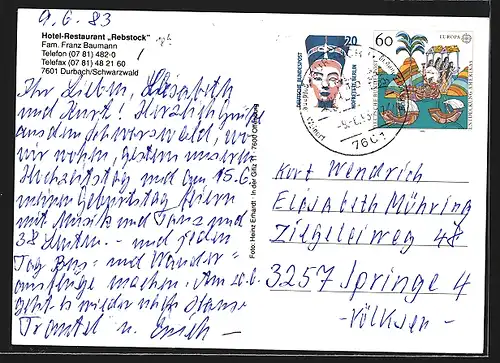 9.6.83
Hotel-Restaurant „Rebstock"
Fam. Franz Baumann
Telefon (07 81) 482-0
Telefax (07 81) 48 21 60
7601 Durbach/Schwarzwald
Ihr Lieben, Elisabeth
und Kurt! Herzlichste
aus dem Schwarzwald, wo
wir wohn, gestern unseren
Hochzeitstag und am 15.6.
meinen Geburtstag feiern
mit Musik und Tanz und
38 Leuten. – und jeden
Tag Bus- und Wander-
ausflüge machen. Am 20.6.
geht's wieder nach Hause
Trautel u.
Foto: Heinz Erhardt · In der Gilz 11 · 7600 Offenburg
20
DEUTSCHE BUNDESPOST
60
EUROPA
7601
Kurt Wendrich
Elisabeth Mühring
Ziegeleiweg 48
3257 Springe 4
-Völksen-